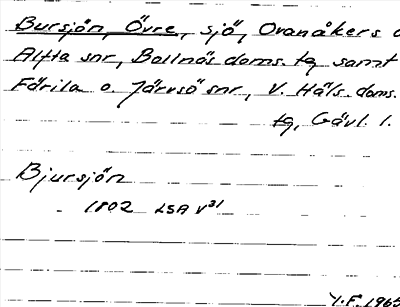 Bursjön, Övre, sjö, Ovanåkers o
Alfta snr, Bollnäs doms. tg samt
Färila o. Järvsö snr, V. Häls. doms.
tg, Gävl. l.
Bjursjön
1802 LSA V³¹
Y.F. 1965